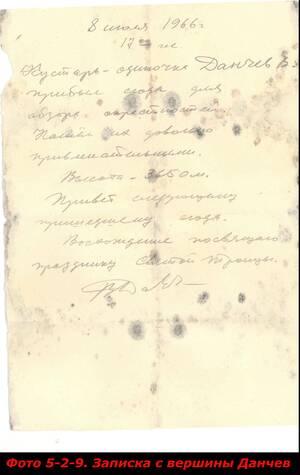 8 июля 1966 г
17 00 чс
Кустарь-одиночка Данчев В.
прибыл сюда для
обзора окрестностей.
Нашёл их довольно
привлекательными.
Высота - 3850 м.
Привет следующему
пришедшему сюда.
Восхождение посвящаю
празднику Святой Троицы.
Фото 5-2-9. Записка с вершины Данчев